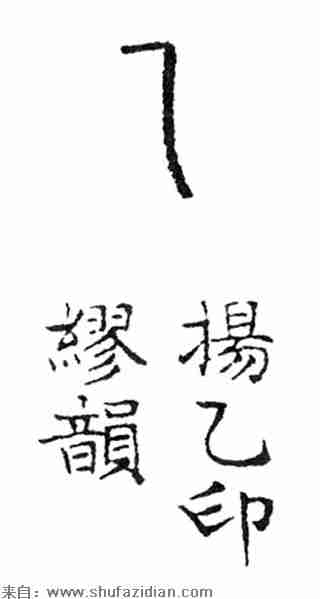 乙
揚乙印
繆韻
来自：www.shufazidian.com